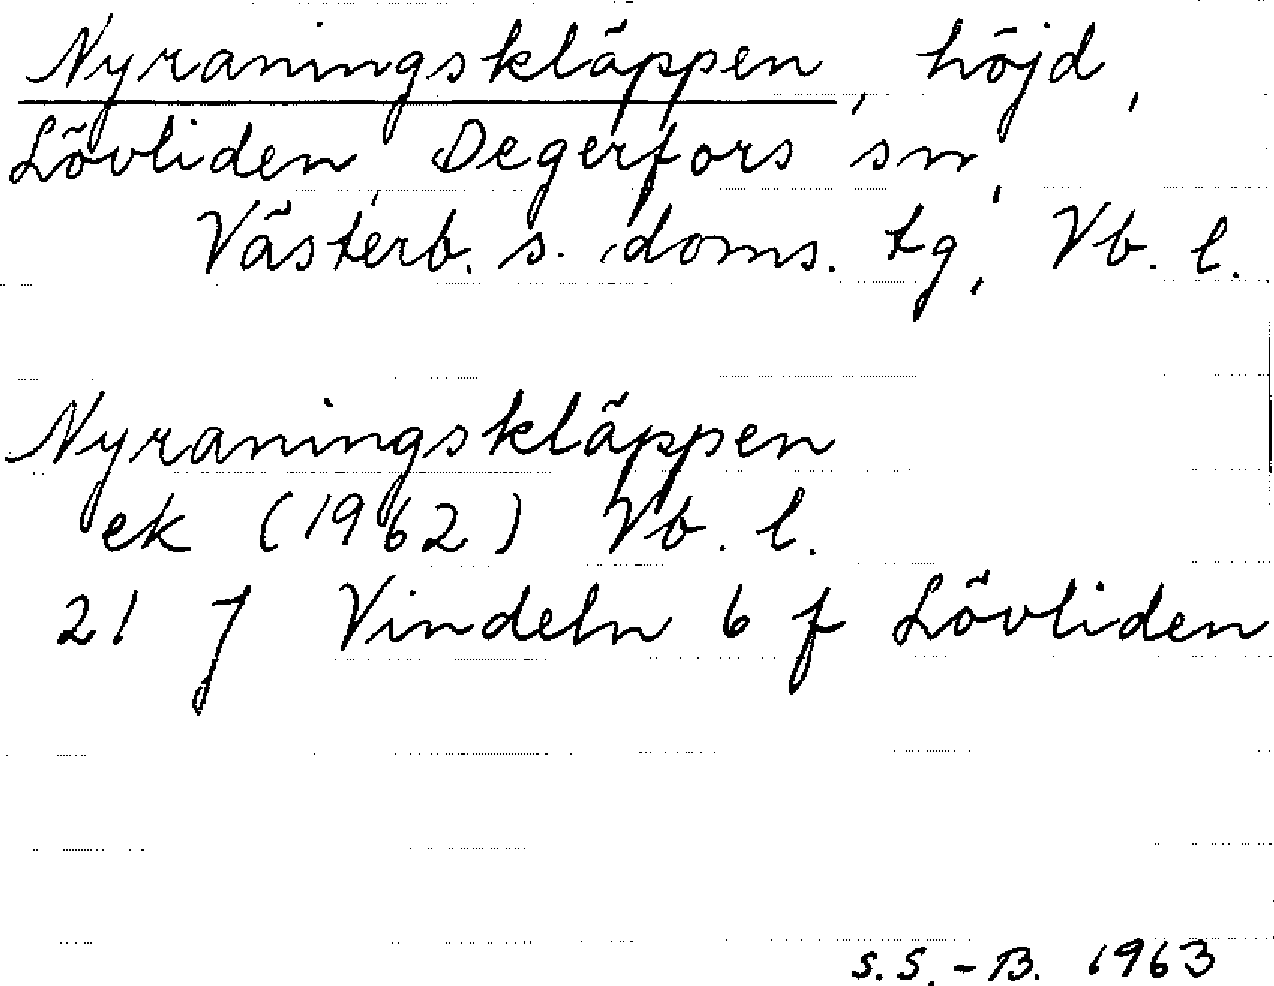 Nyraningskläppen, höjd,
Lövliden, Degerfors sn,
Västerb. s. doms. tg, Vb. l.
Nyraningskläppen
ek (1962) Vb. l.
21 J Vindeln 6 f Lövliden
S.S.-B. 1963